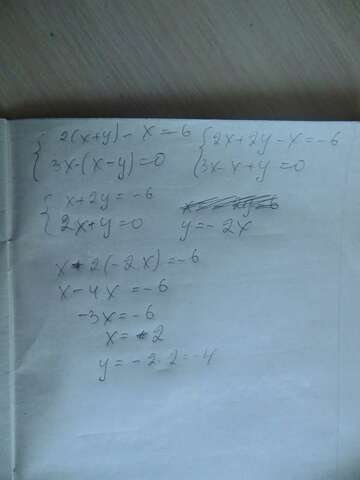 { 2(x+y) - x = -6 { 2x + 2y - x = -6
{ 3x - (x - y) = 0 { 3x - x + y = 0
{ x + 2y = -6
{ 2x + y = 0 y = -2x
x + 2(-2x) = -6
x - 4x = -6
-3x = -6
x = 2
y = -2·2 = -4